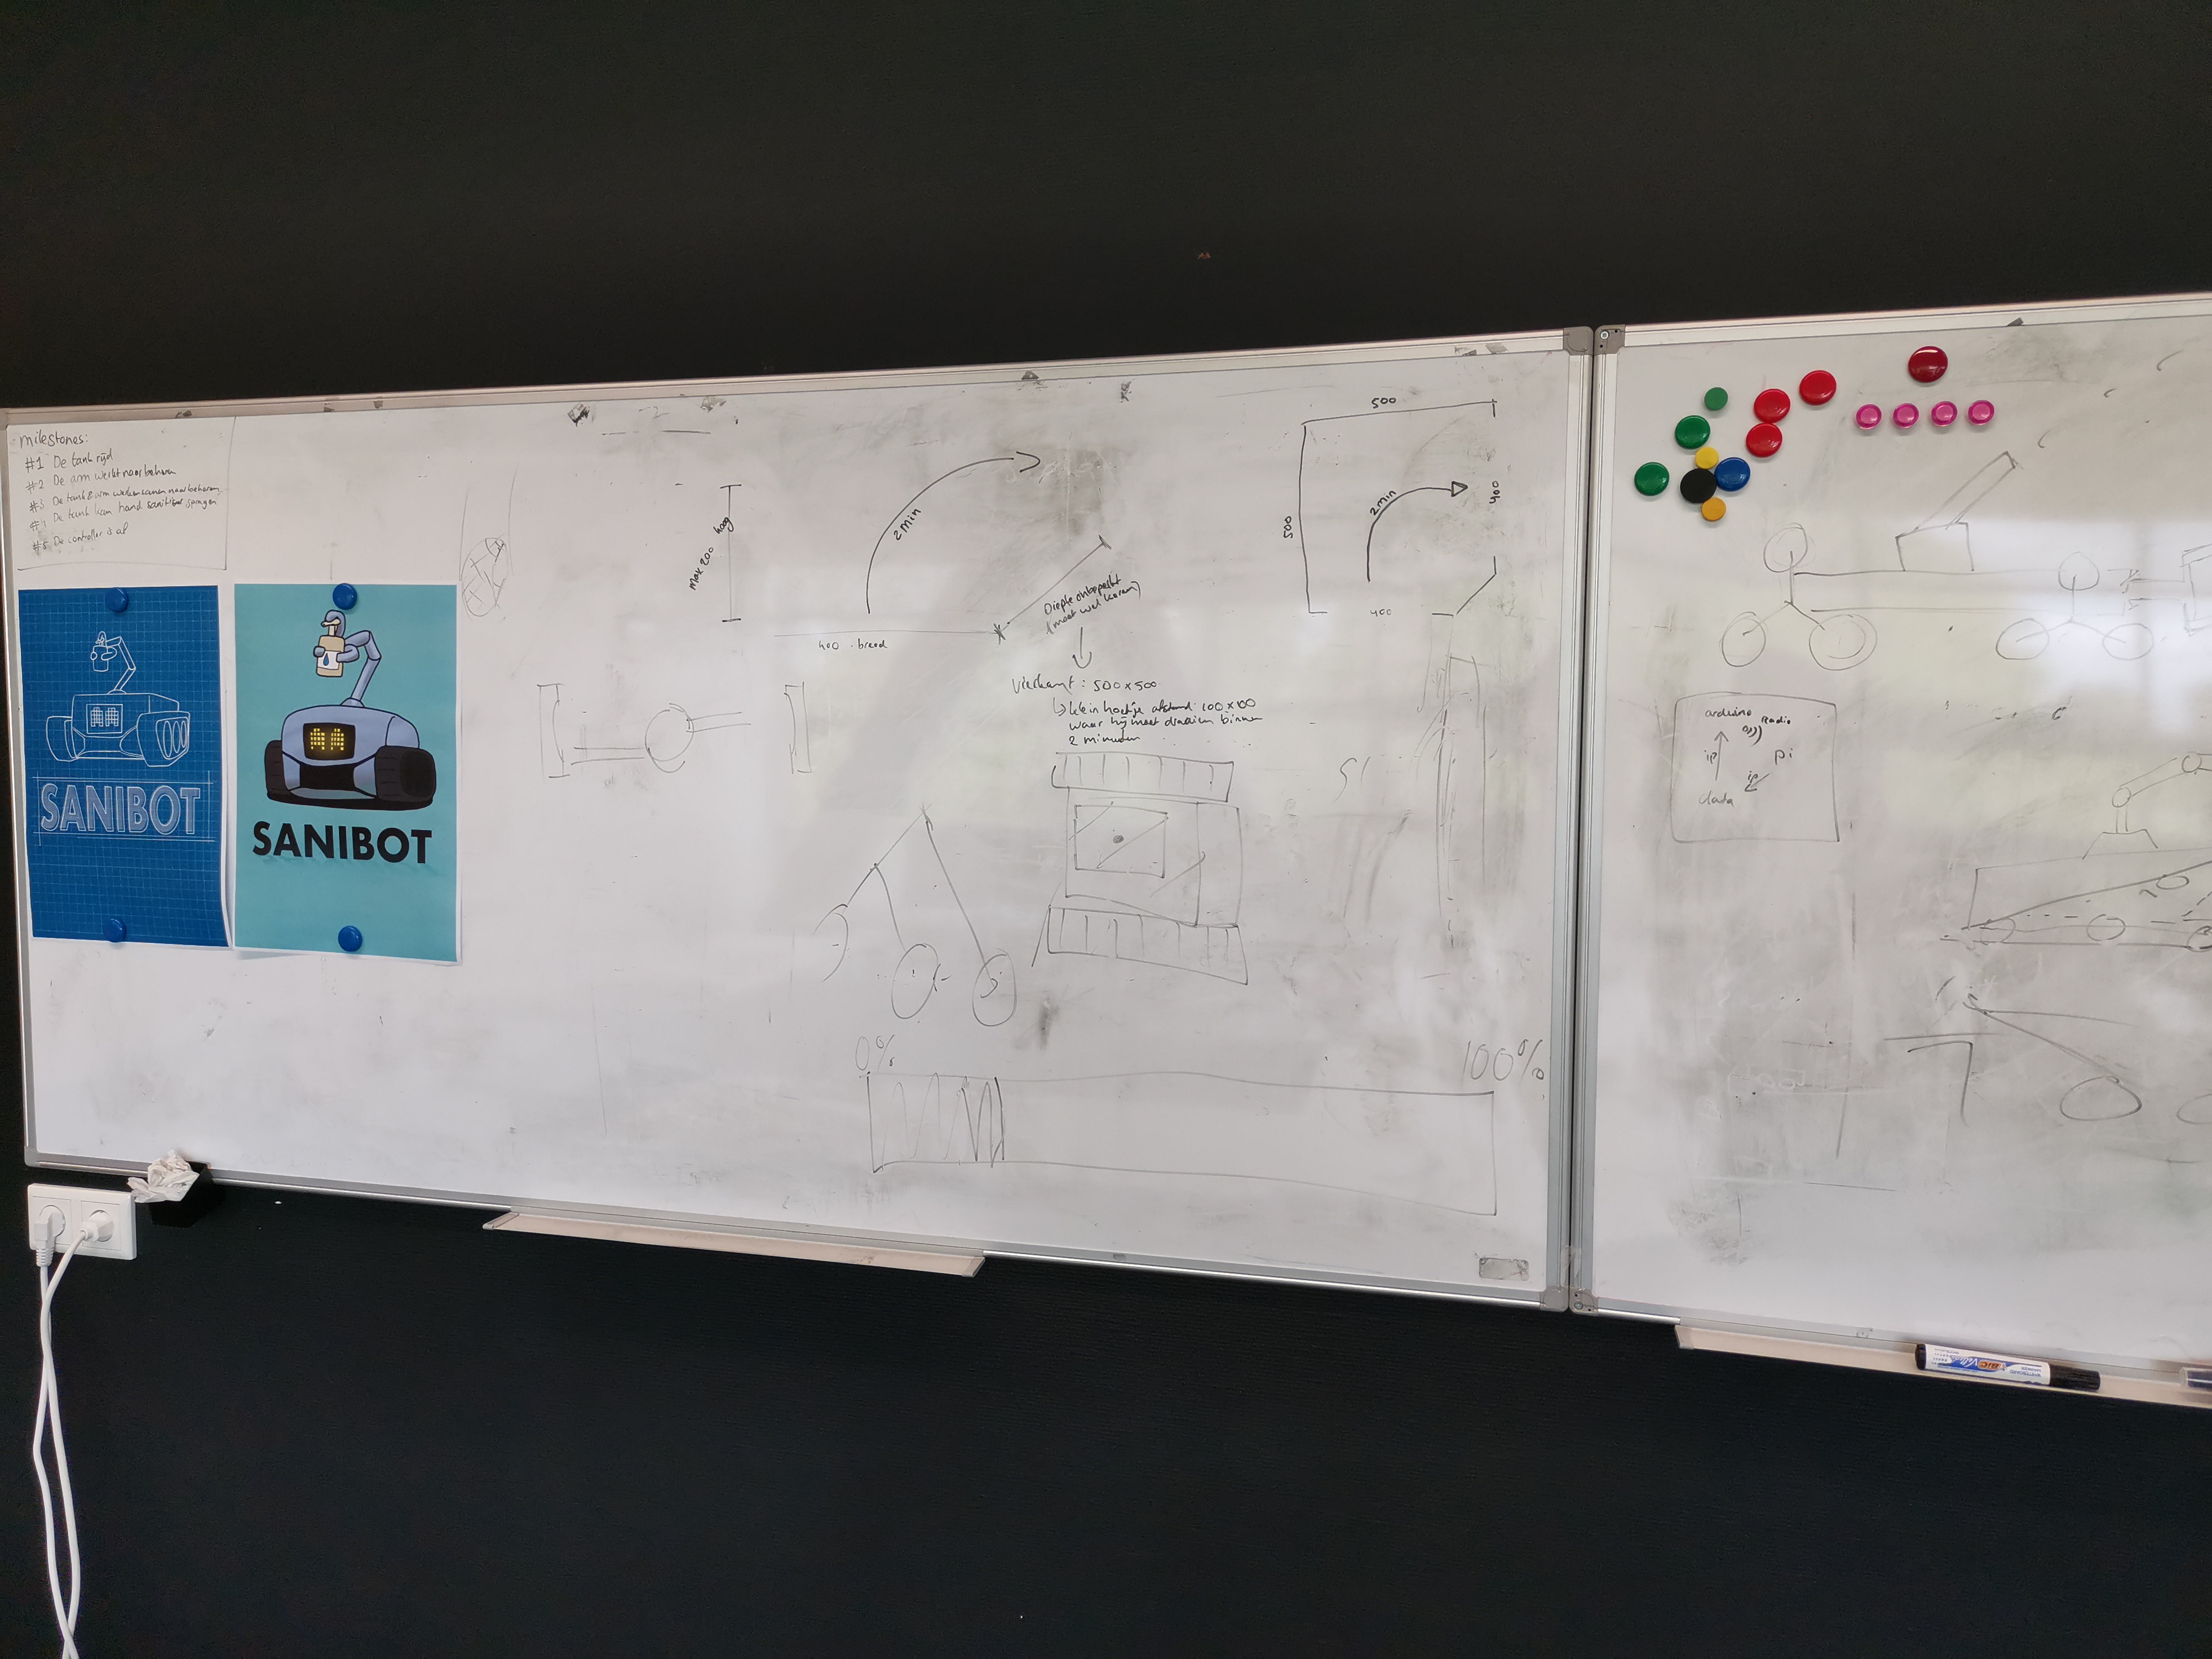 milestones:
#1 De tank rijd
#2 De arm werkt naar behoren
#3 De tank & arm werken samen naar behoren
#4 De tank kan hand sanitiser sprayen
#5 De controller is af
SANIBOT
SANIBOT
max 200 hoog
2 min
400 breed
Diepte onbeperkt
(moet wel kunnen)
Vierkant: 500x500
klein hoekje afstand 100x100
waar hij moet draaien binnen
2 minuten
500
500
2 min
400
400
0%
100%
arduino
Radio
ip
pi
ip
data
BIC